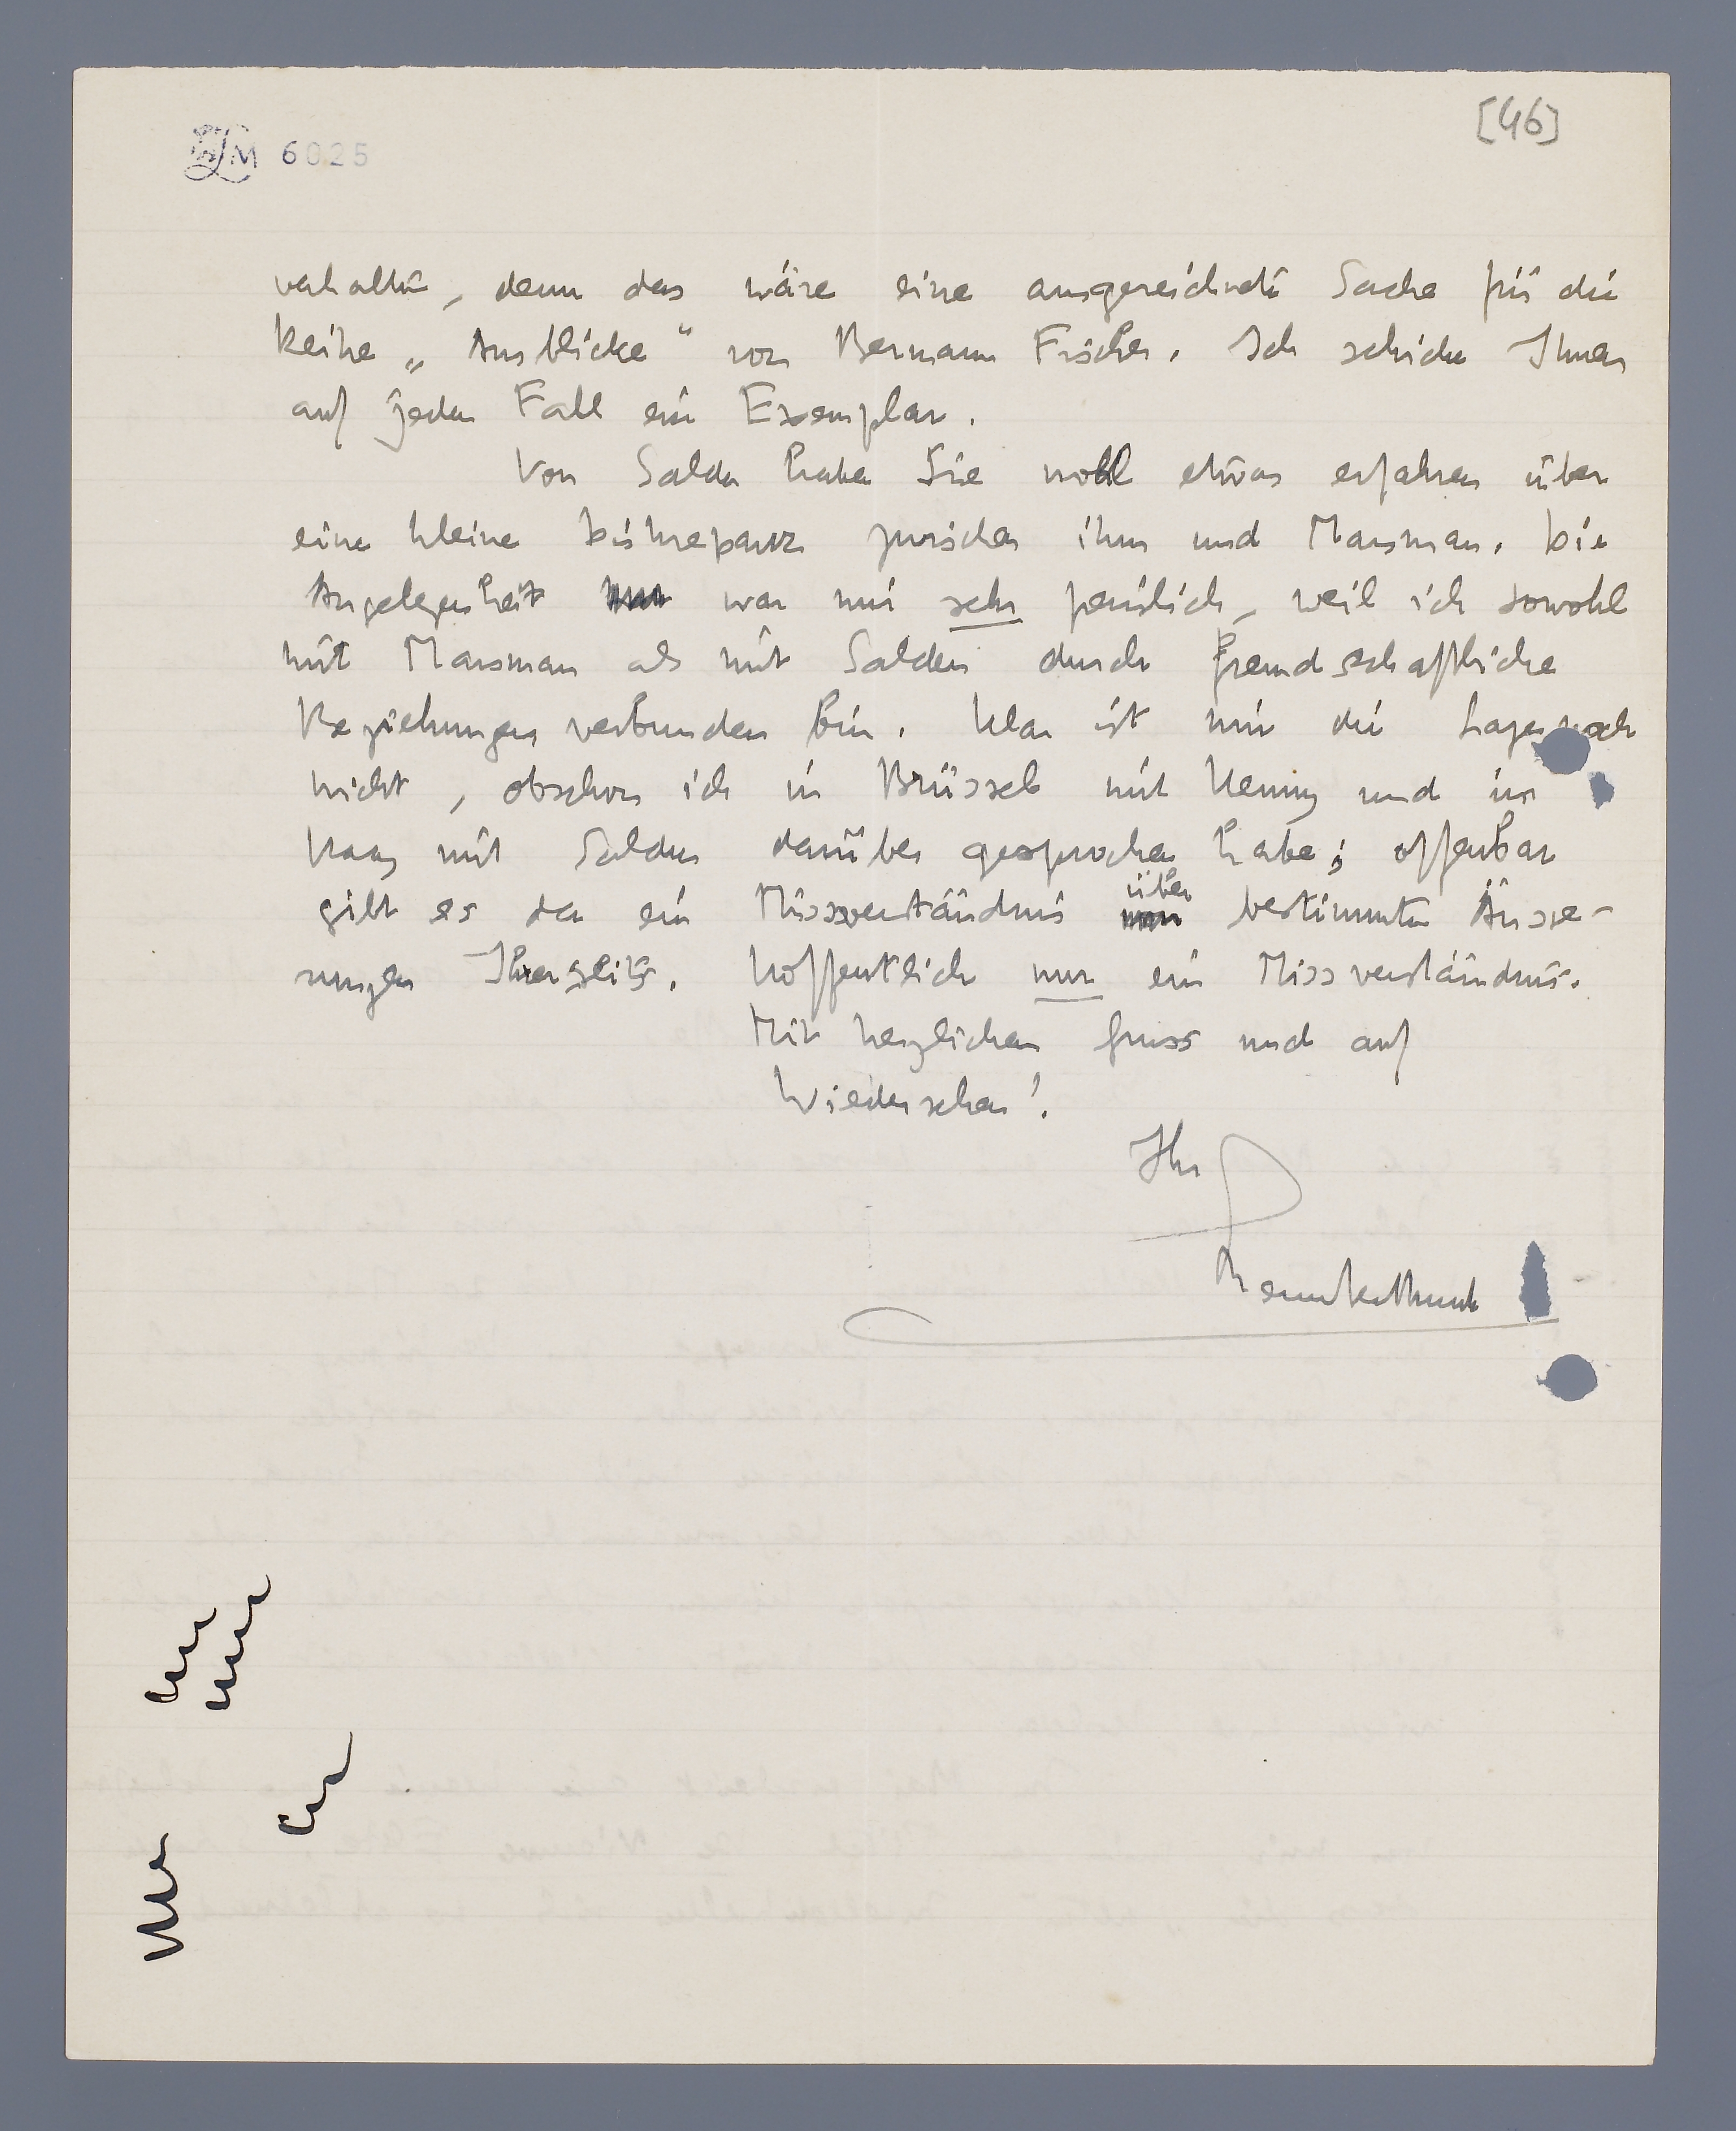 LM 6025
[46]
verhalten, denn das wäre eine ausgezeichnete Sache für die
Reihe „Ausblicke“ von Bermann Fischer. Ich schicke Ihnen
auf jeden Fall ein Exemplar.
Von Salden haben Sie wohl etwas erfahren über
eine kleine Diskrepanz zwischen ihm und Marsman. Die
Angelegenheit war mir sehr peinlich, weil ich sowohl
mit Marsman als mit Salden durch freundschaftliche
Beziehungen verbunden bin. Klar ist mir die Lage noch
nicht, obschon ich in Brüssel mit Henny und im
Haag mit Salden darüber gesprochen habe; offenbar
gibt es da ein Missverständnis über bestimmte Äusse-
rungen Ihrerseits. Hoffentlich nur ein Missverständnis.
Mit herzlichem Gruss und auf
Wiedersehen!
Ihr